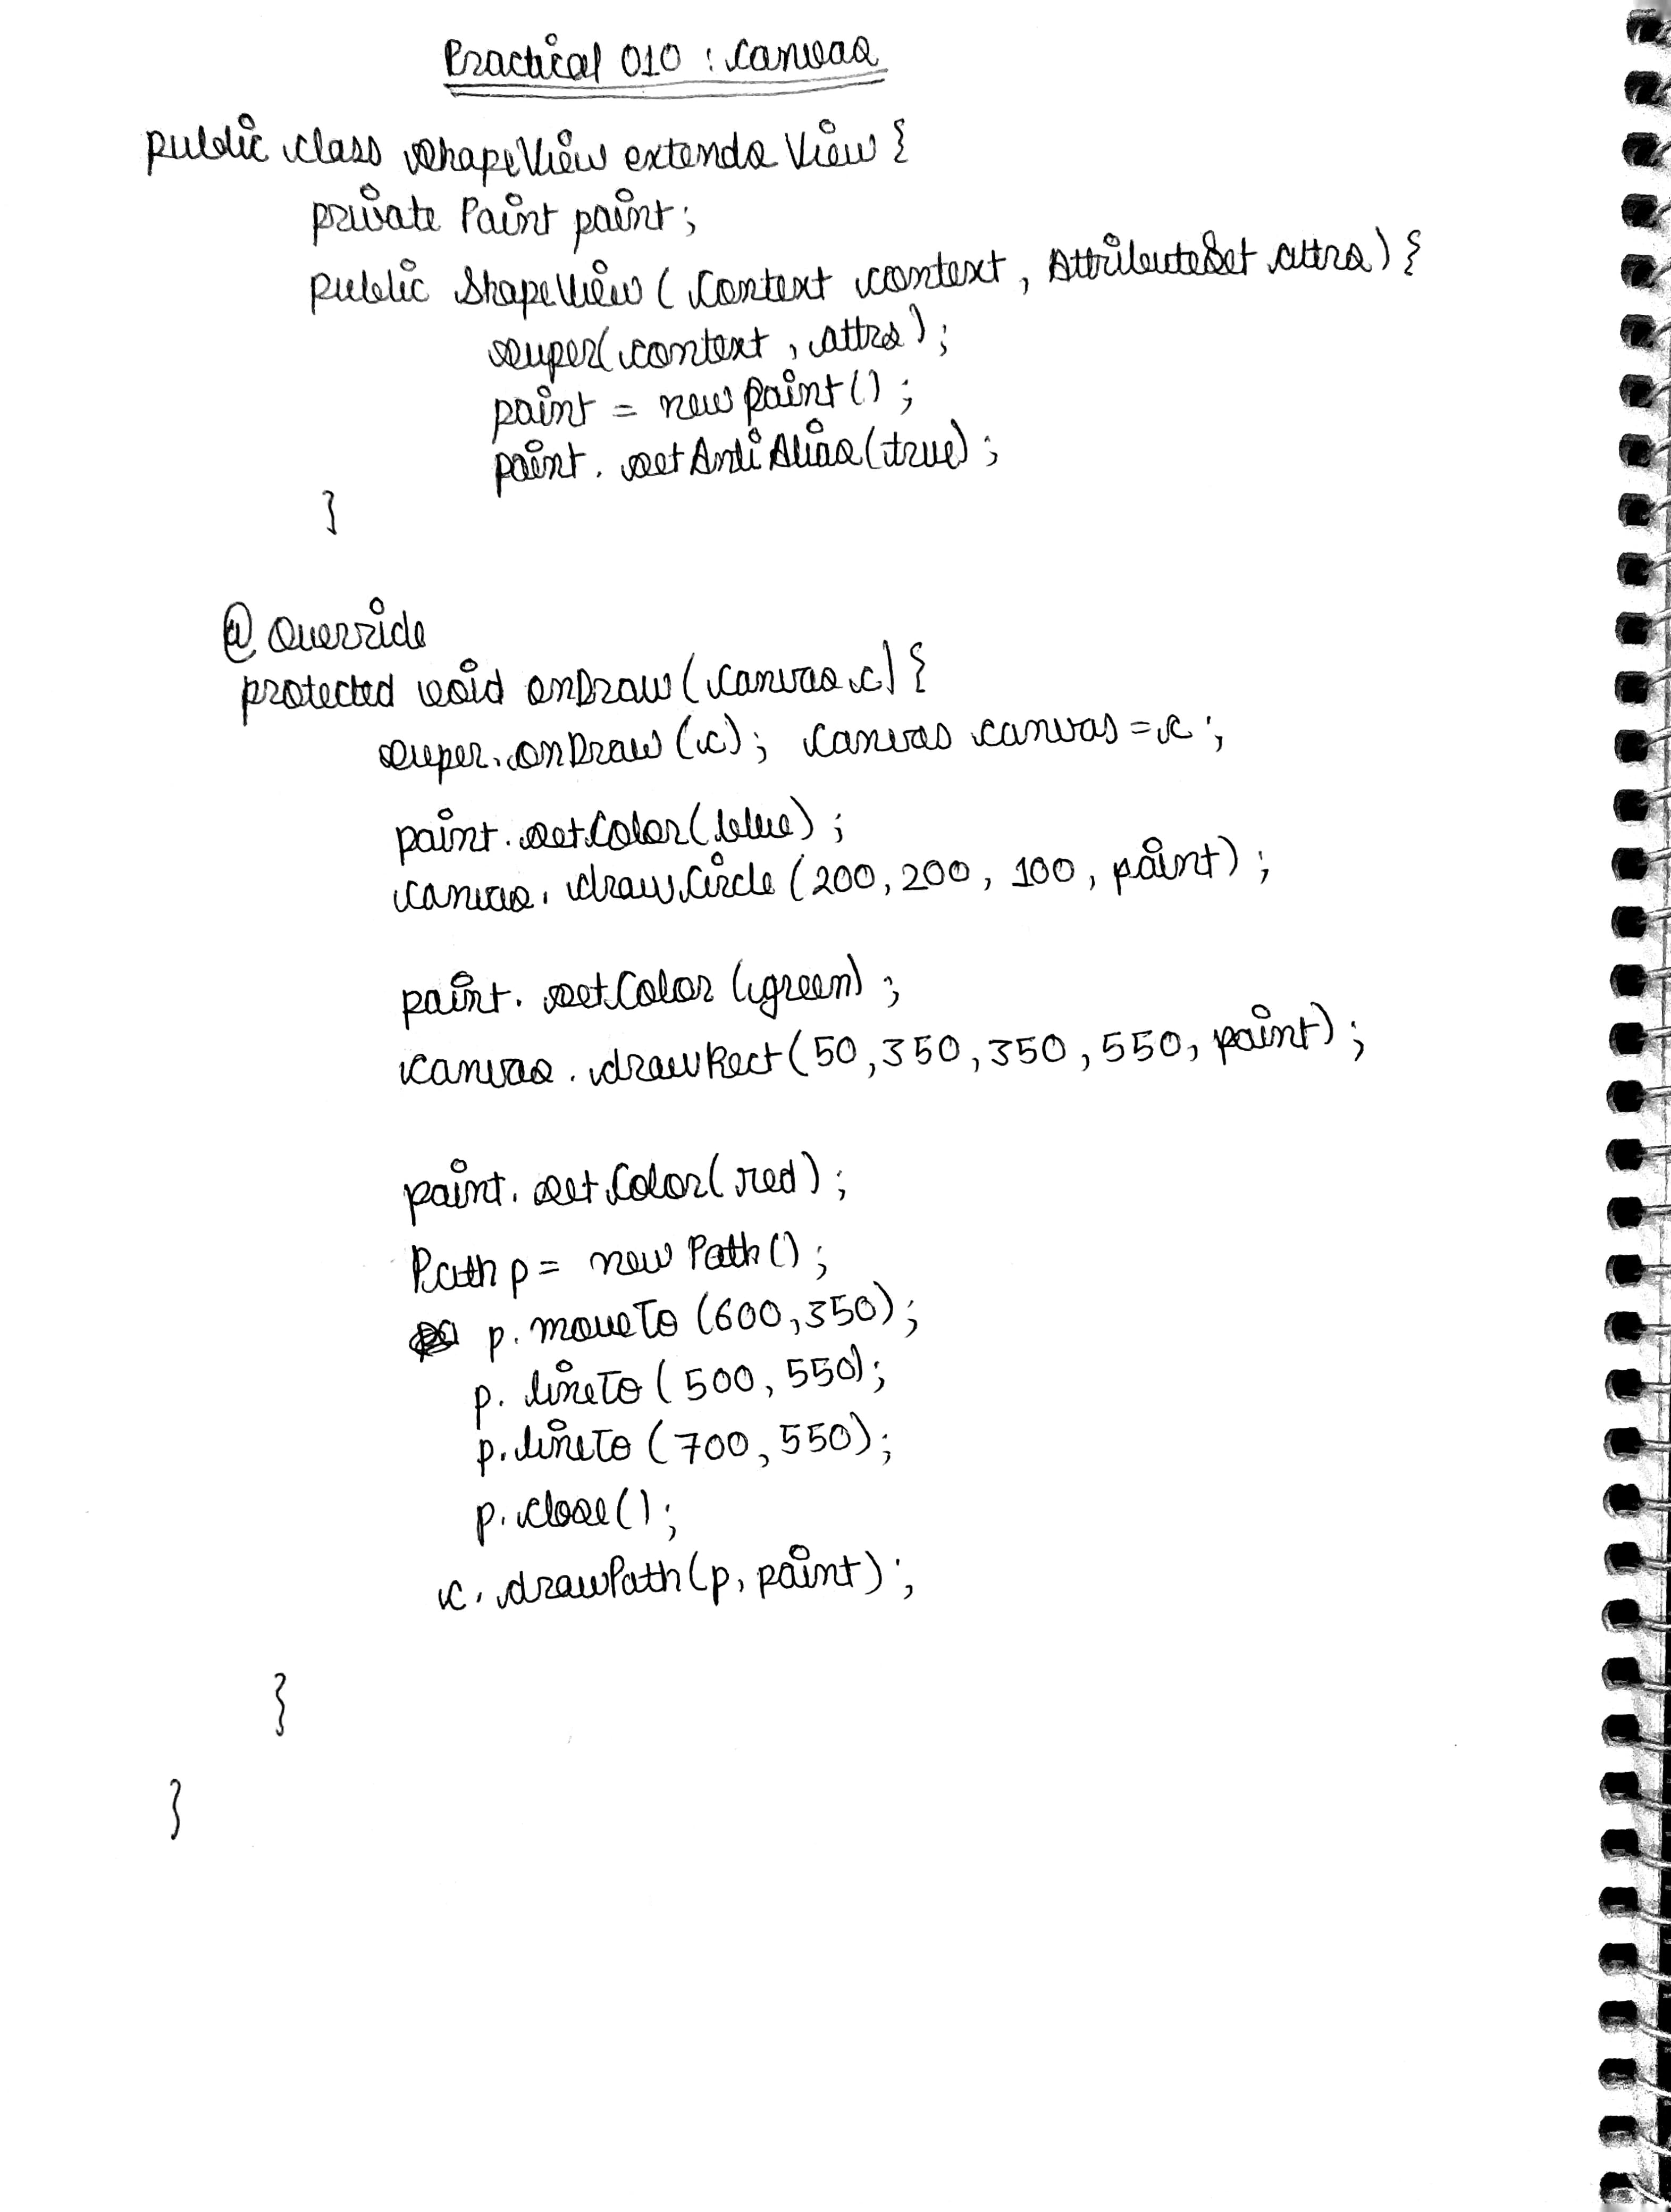 Practical 010 : Canvas
public class ShapeView extends View {
private Paint paint;
public ShapeView ( Context context , AttributeSet attrs ) {
super( context , attrs ) ;
paint = new Paint() ;
paint . setAntiAlias (true) ;
}
@ Override
protected void onDraw ( Canvas c ) {
super. onDraw (c) ; Canvas canvas = c ;
paint . setColor (blue) ;
canvas . drawCircle (200, 200, 100, paint) ;
paint . setColor (green) ;
canvas . drawRect (50, 350, 350, 550, paint) ;
paint . setColor (red) ;
Path p = new Path() ;
p. moveTo (600, 350) ;
p. lineTo ( 500, 550) ;
p. lineTo ( 700, 550) ;
p. close() ;
c. drawPath (p, paint) ;
}
}